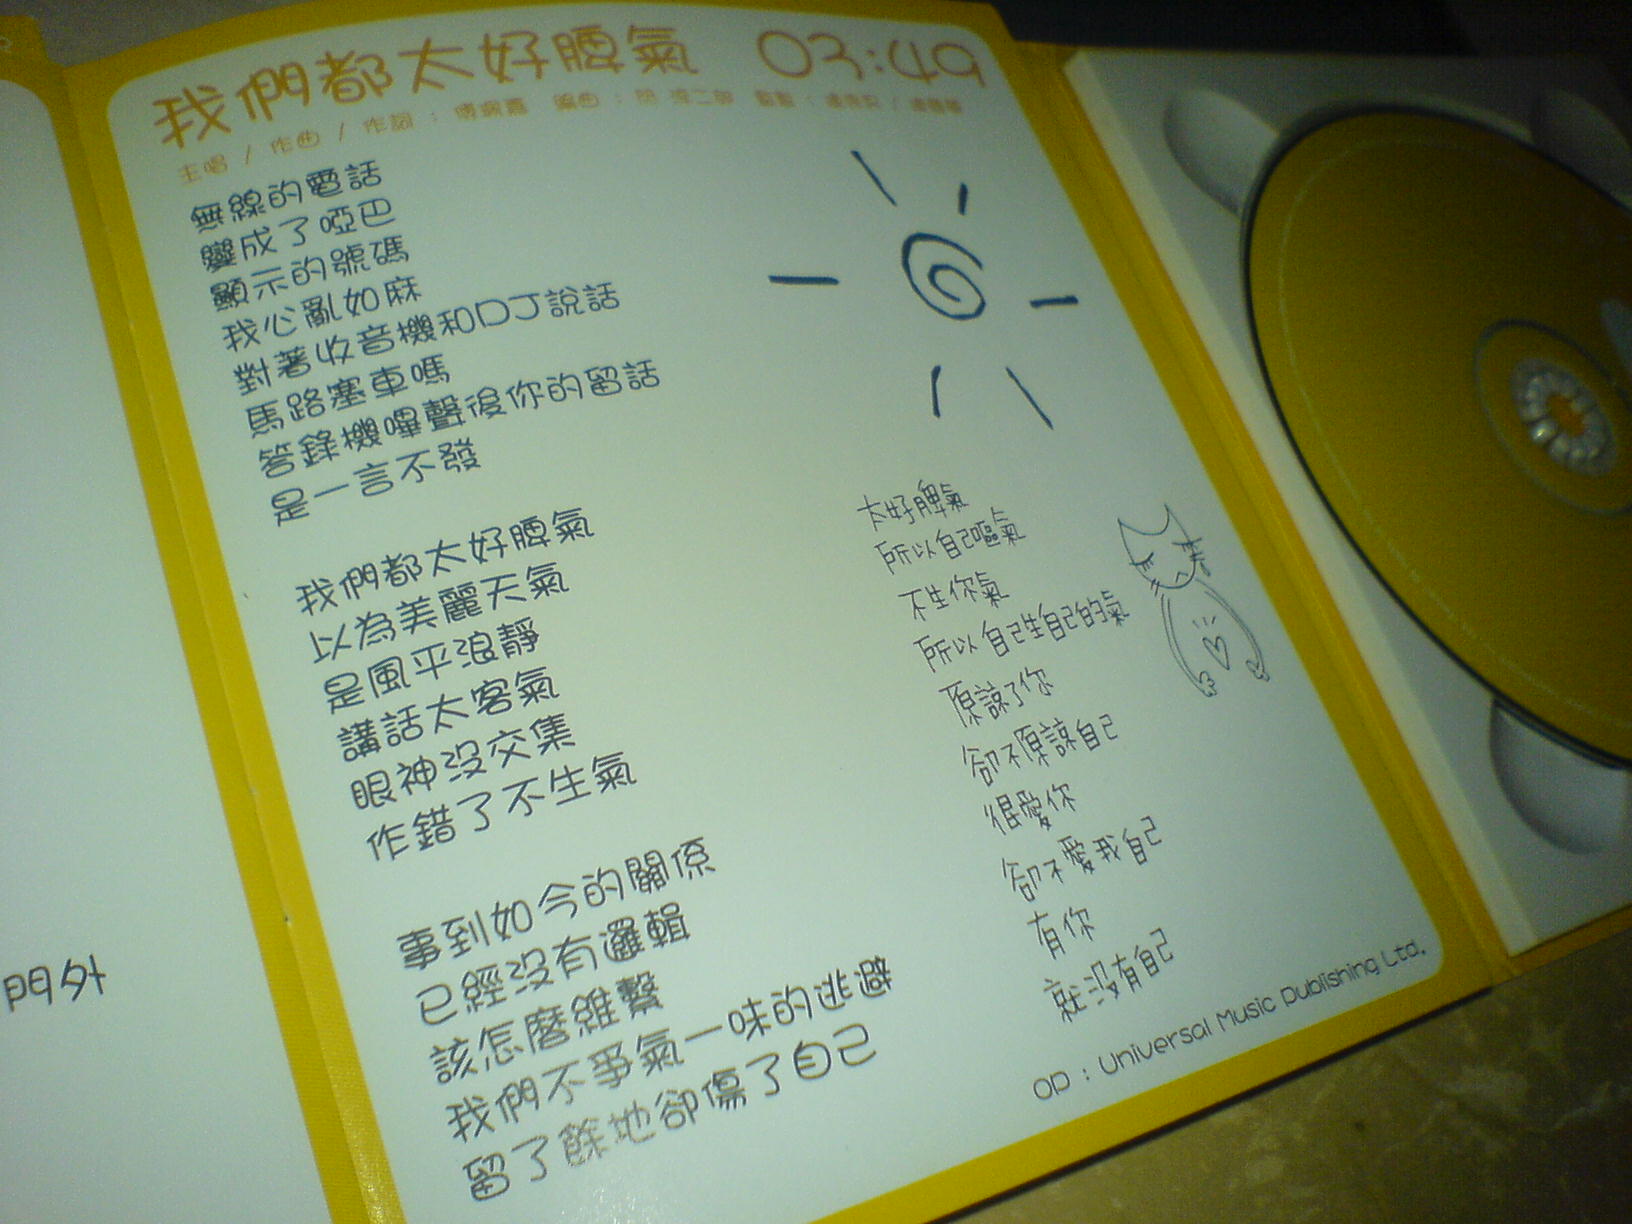 門外
我們都太好脾氣 03:49
主唱 / 作曲 / 作詞 : 傅珮嘉 編曲 :
無線的電話
變成了啞巴
顯示的號碼
我心亂如麻
對著收音機和DJ說話
馬路塞車嗎
答錄機嗶聲後你的留話
是一言不發
我們都太好脾氣
以為美麗天氣
是風平浪靜
講話太客氣
眼神沒交集
作錯了不生氣
事到如今的關係
已經沒有邏輯
該怎麼維繫
我們不爭氣一味的逃避
留了餘地卻傷了自己
太好脾氣
所以自己嘔氣
不生你氣
所以自己生自己的氣
原諒了你
卻不原諒自己
很愛你
卻不愛我自己
有你
就沒有自己
OP : Universal Music Publishing Ltd.